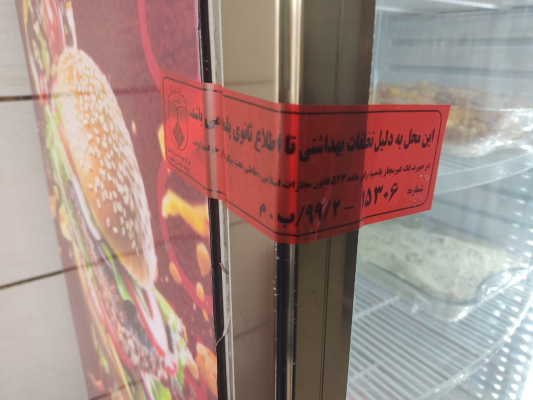 این محل به دلیل تخلفات بهداشتی تا اطلاع ثانوی پلمب می باشد.
در صورت فک غیر مجاز پلمب برابر ماده ۵۴۳ قانون مجازات اسلامی
شماره ۱۵۳۰۶ - ۹۹/۲/ب.م